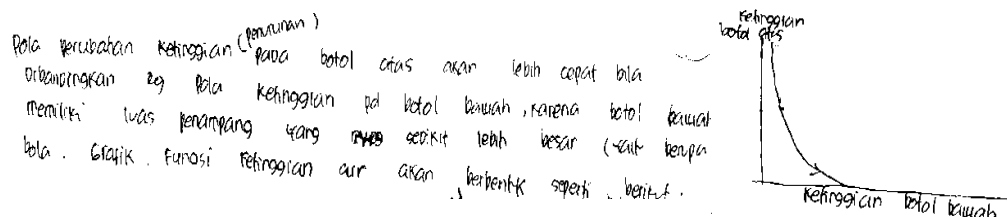 Pola perubahan ketinggian (penurunan) pada botol atas akan lebih cepat bila
dibandingkan dg Pola ketinggian pd botol bawah, karena botol bawah
memiliki luas penampang yang sedikit lebih besar (yaitu berupa
bola. Grafik Fungsi ketinggian air akan berbentuk seperti berikut.
Ketinggian
botol atas
Ketinggian botol bawah